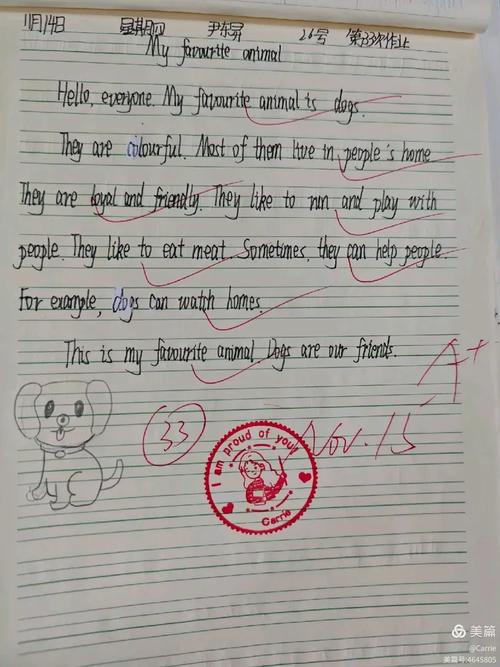 11月14日 星期四 尹东昇 26号 第33次作业
My favourite animal
Hello, everyone. My favourite animal is dogs.
They are colourful. Most of them live in people's home.
They are loyal and friendly. They like to run and play with
people. They like to eat meat. Sometimes, they can help people.
For example, dogs can watch homes.
This is my favourite animal. Dogs are our friends.
A+
33
Nov. 15
I am proud of you!
Carrie
美篇
@Carrie
美篇号:4645805